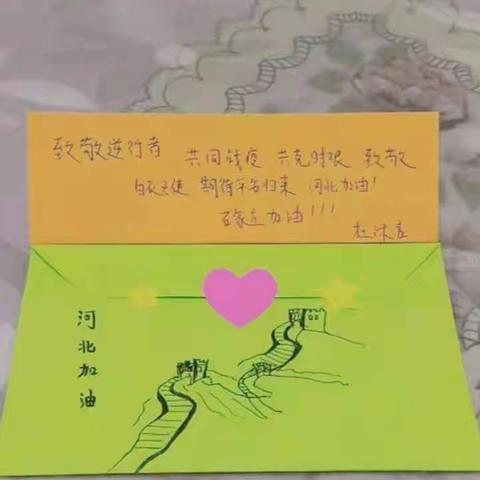 致敬逆行者 共同战疫 共克时艰 致敬
白衣天使 期待平安归来 河北加油！
石家庄加油！！！
河北加油